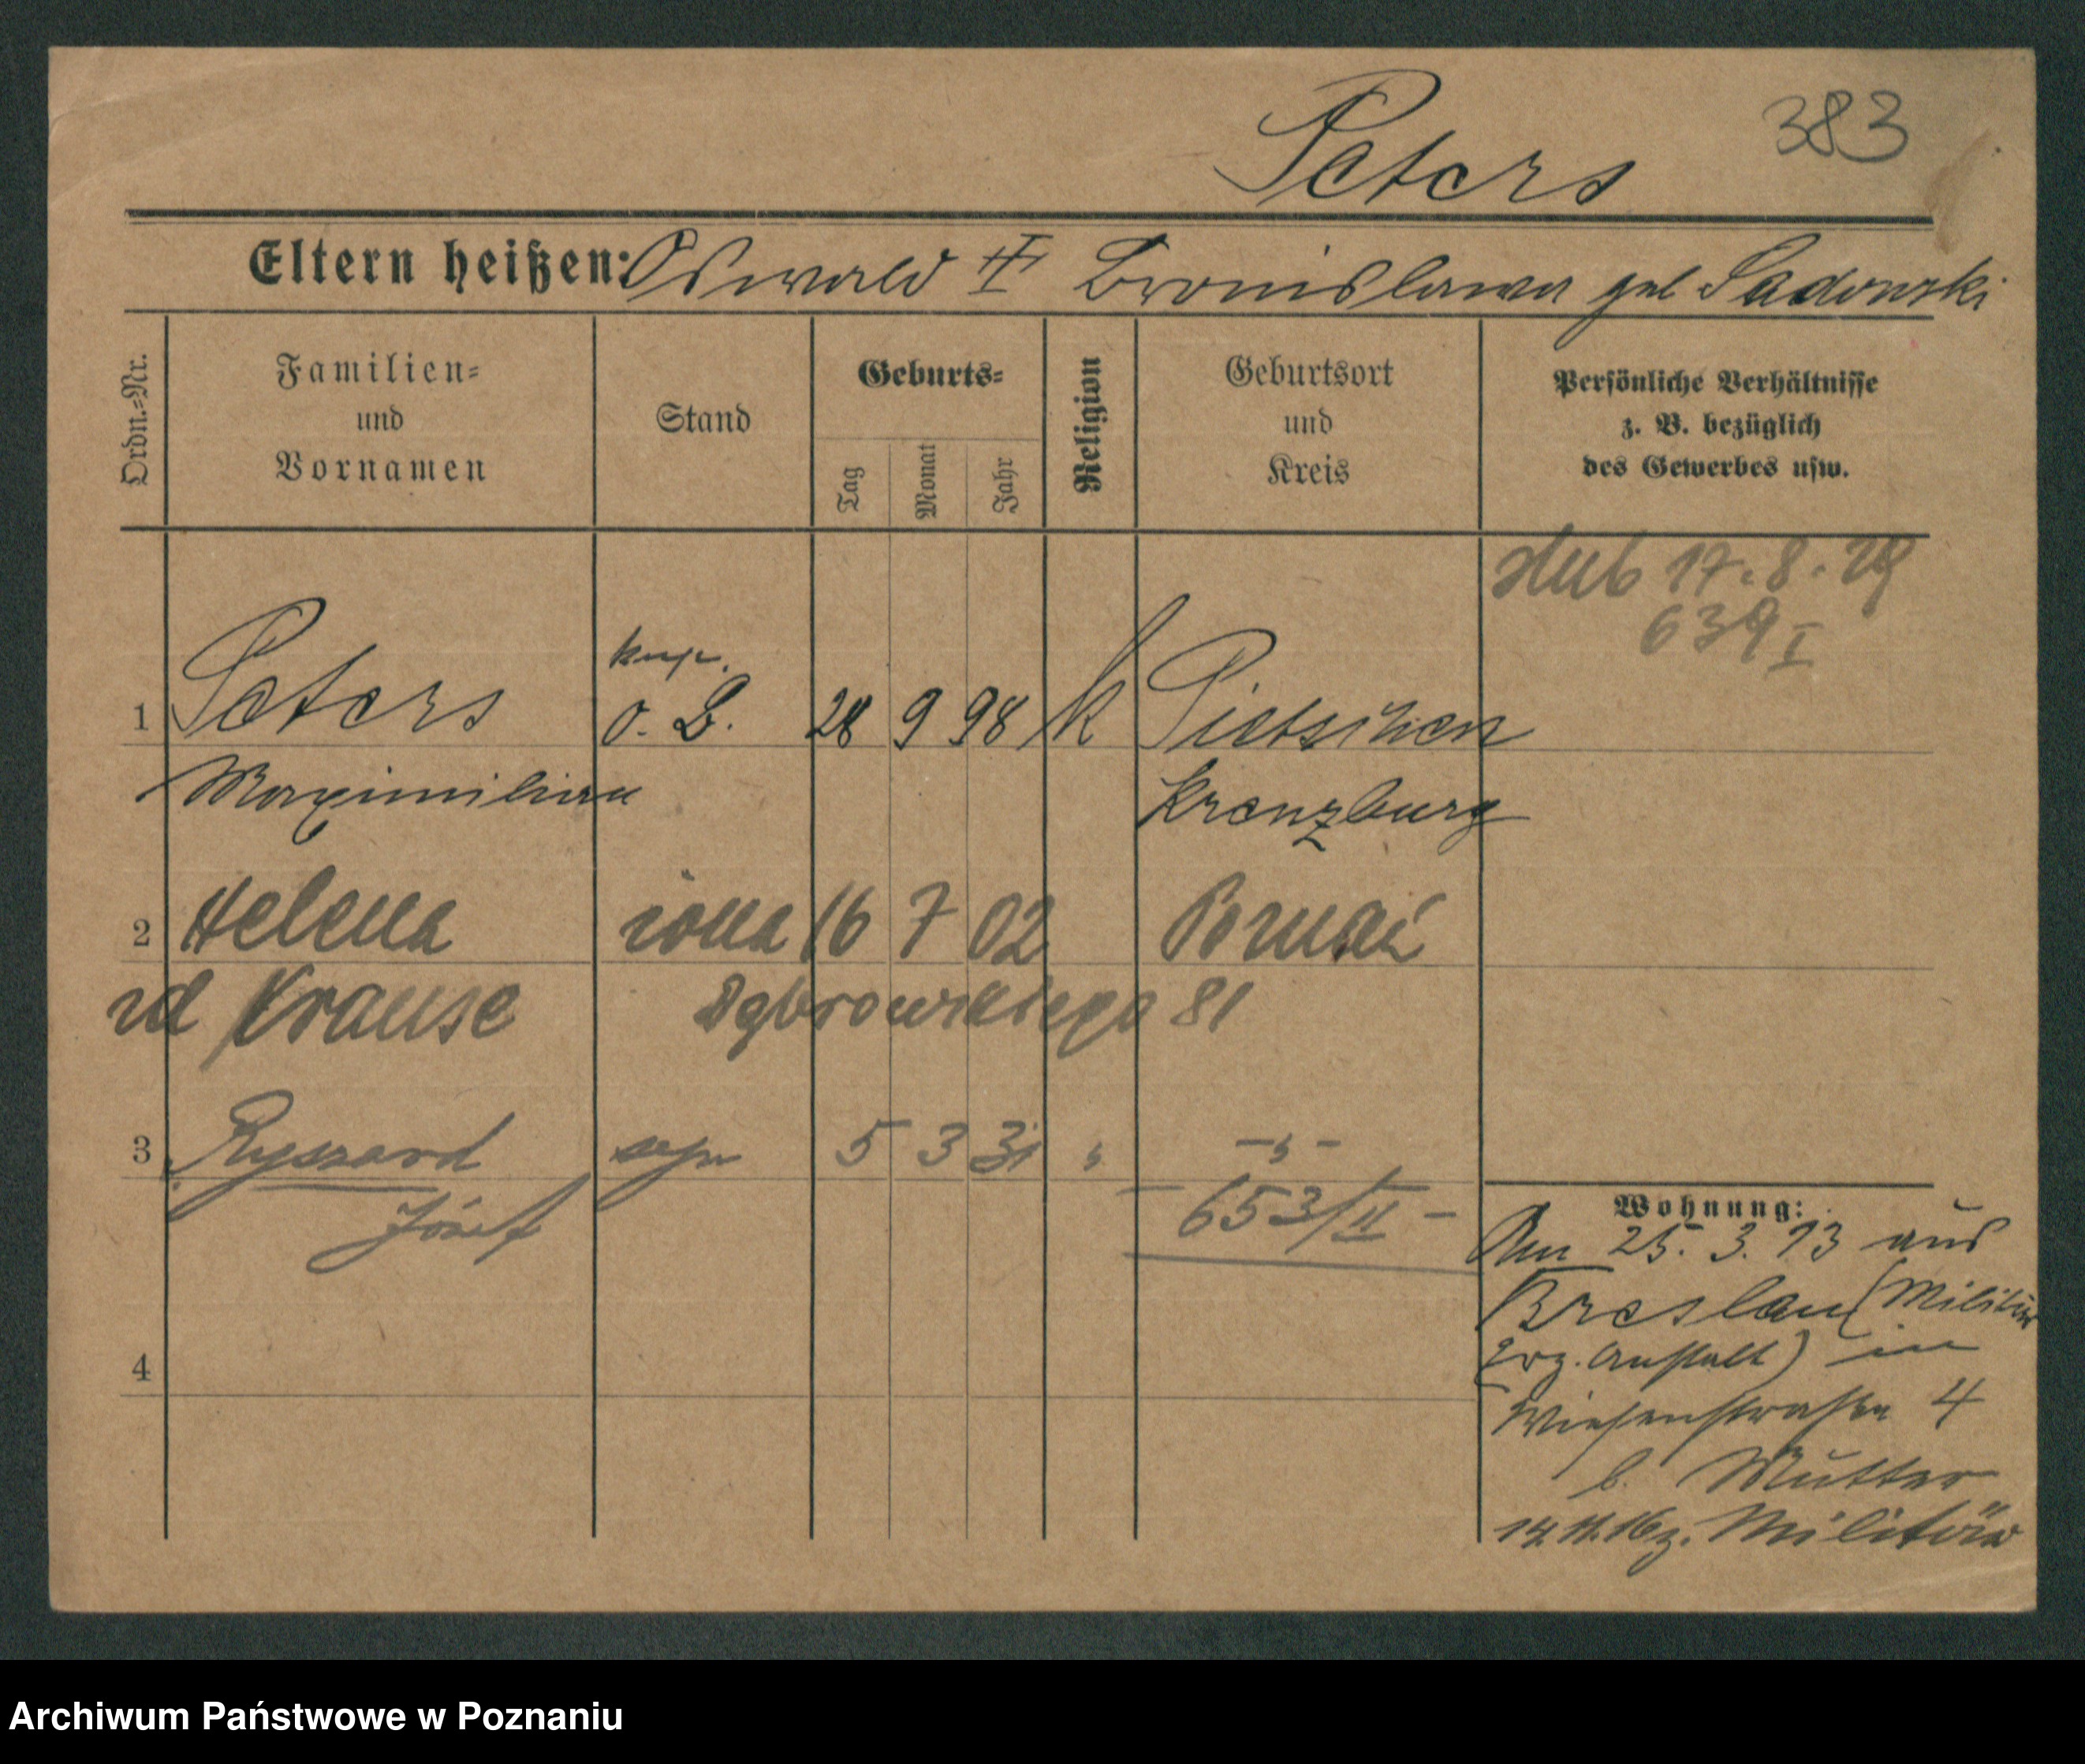 383
Peters
Eltern heißen: Oswald Bronislawa geb Sadowski
Ordn.-Nr.
Familien-
und
Vornamen
Stand
Geburts-
Tag
Monat
Jahr
Religion
Geburtsort
und
Kreis
Persönliche Verhältnisse
z. B. bezüglich
des Gewerbes usw.
ślub 17.8.29
639 I
kup.
1 Peters o. B. 28 9 98 k Pietschen
Maximilian Kreuzburg
2 Helena żona 16 7 02 Poznań
zd Krause Dąbrowskiego 81
3 Ryszard syn 5 3 31 " -"-
Józef - 653/II -
4
Wohnung:
Am 25. 3. 13 aus
Breslau (Militär
Erz. Anstalt) in
Wiesenstraße 4
b. Mutter
14.11.16 z. Militär
Archiwum Państwowe w Poznaniu